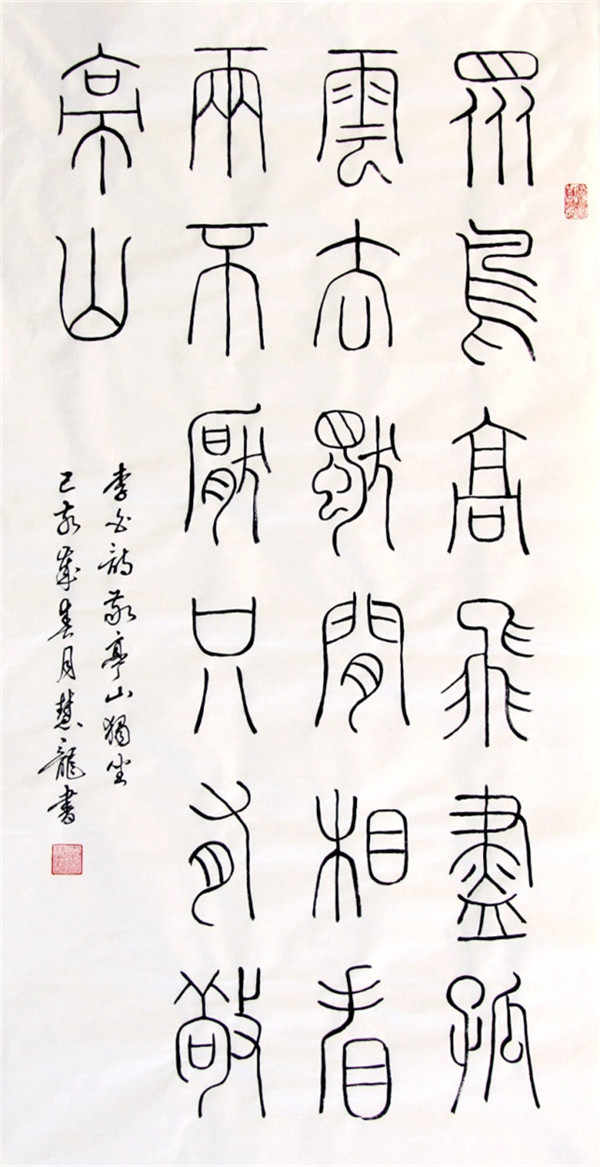 眾鳥高飛盡孤
雲去獨閒相看
兩不厭只有敬
亭山
李白詩敬亭山獨坐
己亥歲春月慧龍書